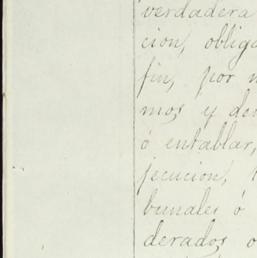 verdadera
cion, obliga
fin, por m
mos y de
ó entablar,
jecucion,
bunales ó
derados o